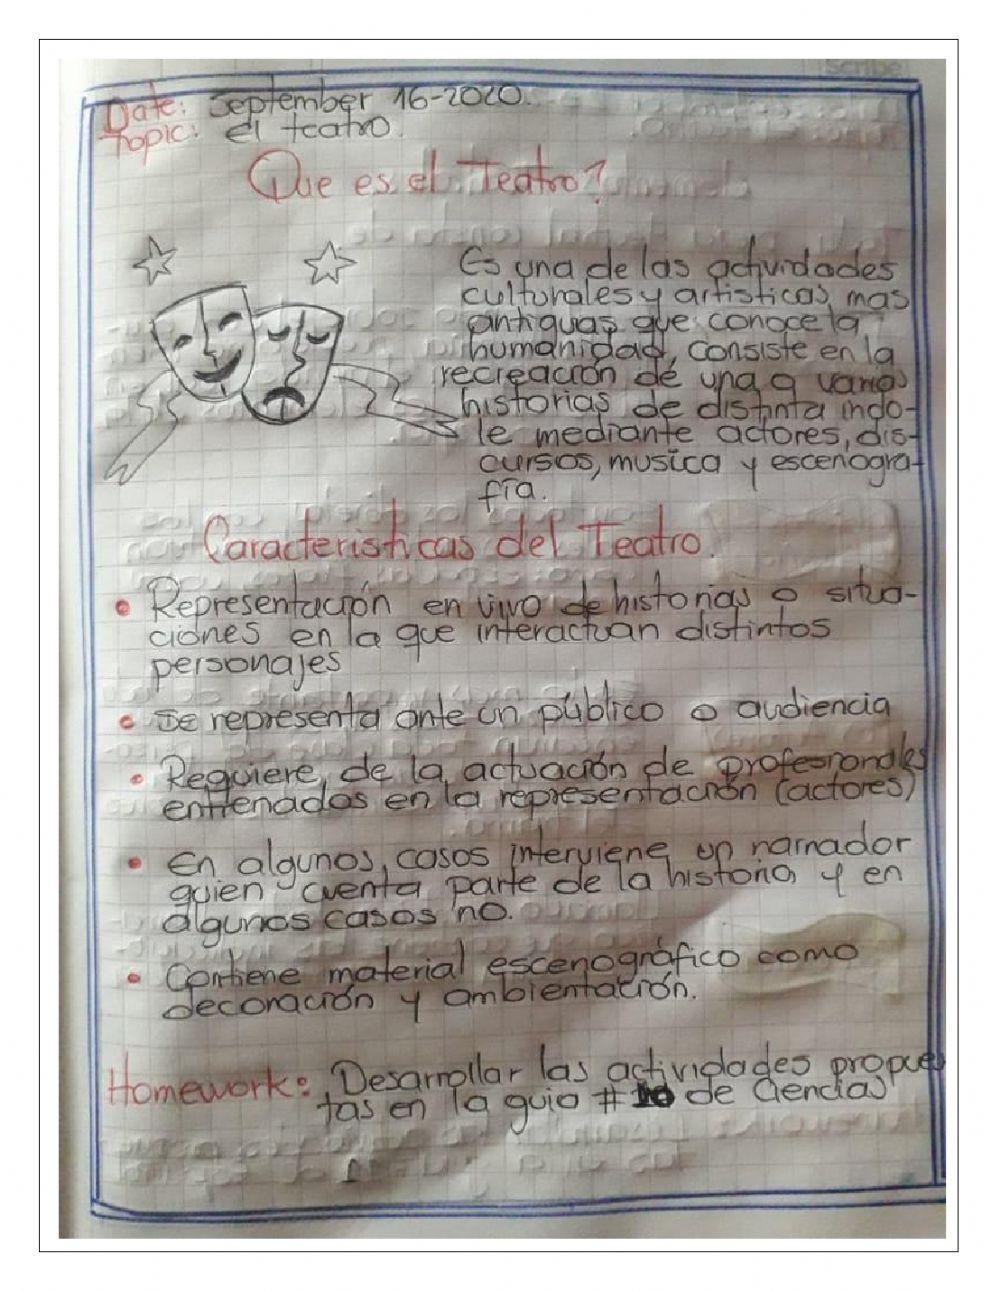 Scribe
Date: September 16-2020.
Topic: el teatro.
Que es el Teatro?
Es una de las actividades
culturales y artisticas mas
antiguas que conoce la
humanidad, consiste en la
recreación de una o varias
historias de distinta indo-
le mediante actores, dis-
cursos, musica y escenogra-
fía.
Caracteristicas del Teatro.
• Representación en vivo de historias o situa-
ciones en la que interactuan distintos
personajes
• Se representa ante un público o audiencia
• Requiere de la actuación de profesionales
entrenados en la representación (actores)
• En algunos casos interviene un narrador
quien cuenta parte de la historia y en
algunos casos no.
• Contiene material escenográfico como
decoración y ambientación.
Homework: Desarrollar las actividades propues
tas en la guia #10 de Ciencias